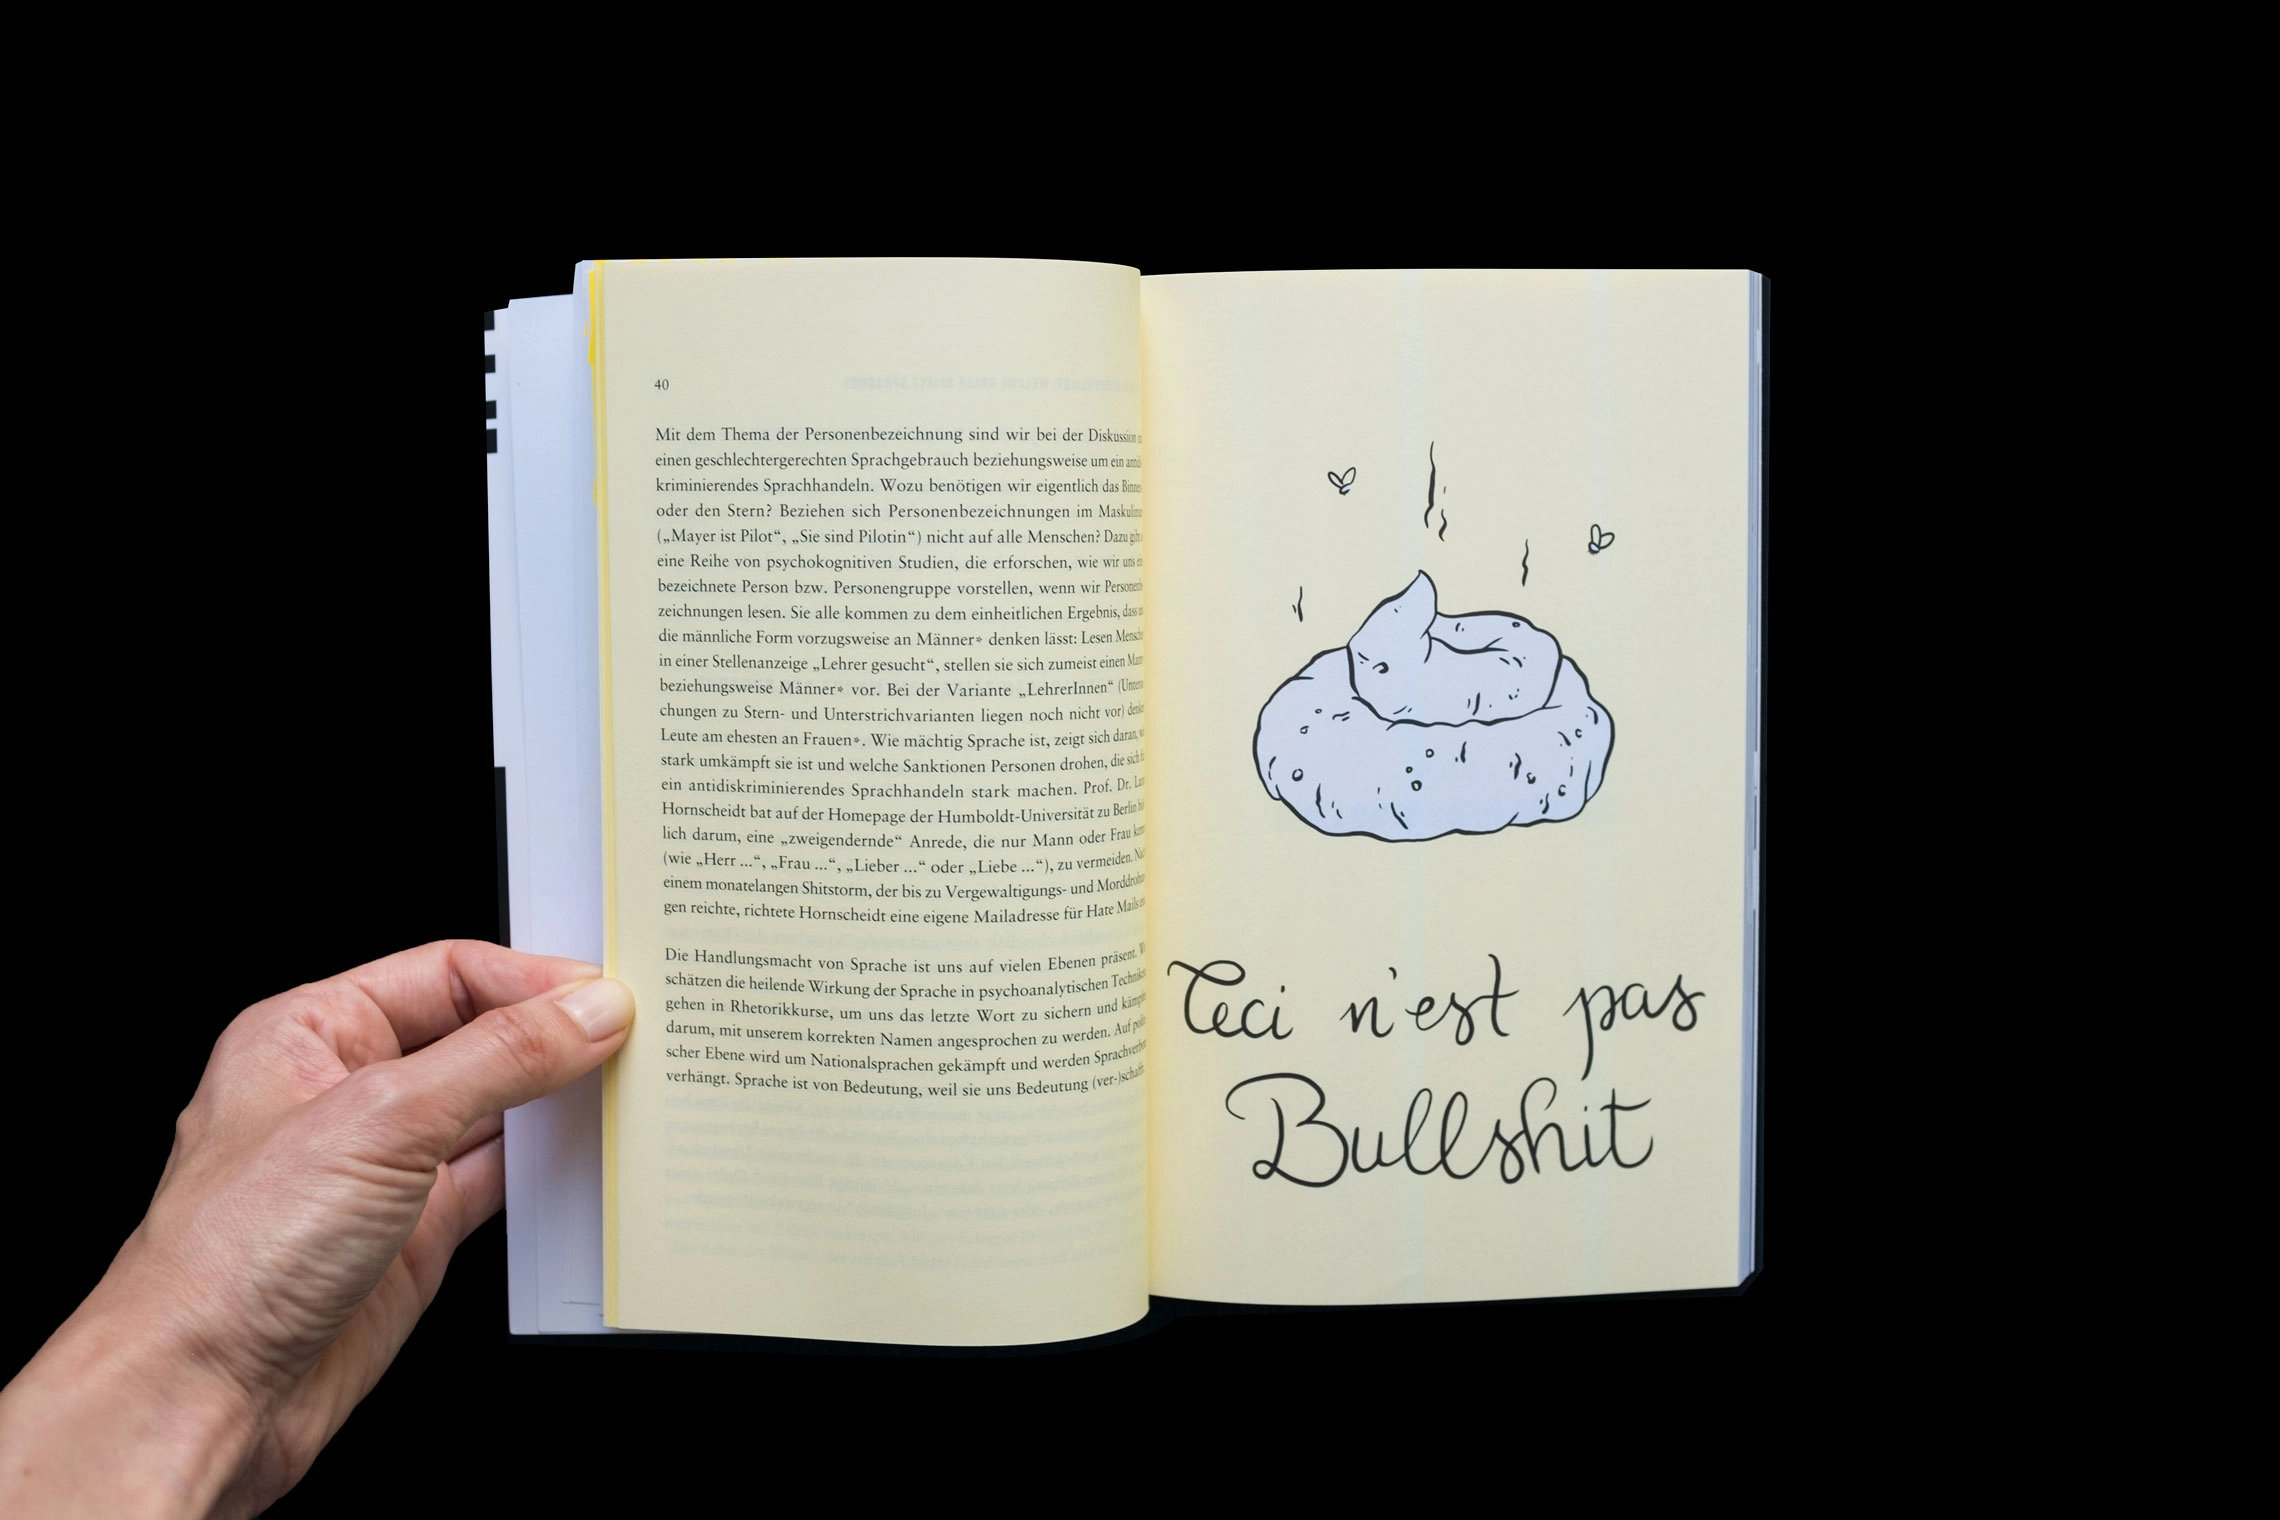 40
Mit dem Thema der Personenbezeichnung sind wir bei der Diskussion
einen geschlechtergerechten Sprachgebrauch beziehungsweise um ein
kriminierendes Sprachhandeln. Wozu benötigen wir eigentlich das
oder den Stern? Beziehen sich Personenbezeichnungen im
(„Mayer ist Pilot“, „Sie sind Pilotin“) nicht auf alle Menschen? Dazu
eine Reihe von psychokognitiven Studien, die erforschen, wie wir uns
bezeichnete Person bzw. Personengruppe vorstellen, wenn wir
zeichnungen lesen. Sie alle kommen zu dem einheitlichen Ergebnis, dass
die männliche Form vorzugsweise an Männer* denken lässt: Lesen
in einer Stellenanzeige „Lehrer gesucht“, stellen sie sich zumeist einen
beziehungsweise Männer* vor. Bei der Variante „LehrerInnen“
chungen zu Stern- und Unterstrichvarianten liegen noch nicht vor)
Leute am ehesten an Frauen*. Wie mächtig Sprache ist, zeigt sich daran,
stark umkämpft sie ist und welche Sanktionen Personen drohen, die sich
ein antidiskriminierendes Sprachhandeln stark machen. Prof. Dr.
Hornscheidt bat auf der Homepage der Humboldt-Universität zu Berlin
lich darum, eine „zweigendernde“ Anrede, die nur Mann oder Frau
(wie „Herr ...“, „Frau ...“, „Lieber ...“ oder „Liebe ...“), zu vermeiden.
einem monatelangen Shitstorm, der bis zu Vergewaltigungs- und
gen reichte, richtete Hornscheidt eine eigene Mailadresse für Hate Mails
Die Handlungsmacht von Sprache ist uns auf vielen Ebenen präsent.
schätzen die heilende Wirkung der Sprache in psychoanalytischen
gehen in Rhetorikkurse, um uns das letzte Wort zu sichern und
darum, mit unserem korrekten Namen angesprochen zu werden. Auf
scher Ebene wird um Nationalsprachen gekämpft und werden
verhängt. Sprache ist von Bedeutung, weil sie uns Bedeutung (ver-)schafft.
Ceci n'est pas
Bullshit